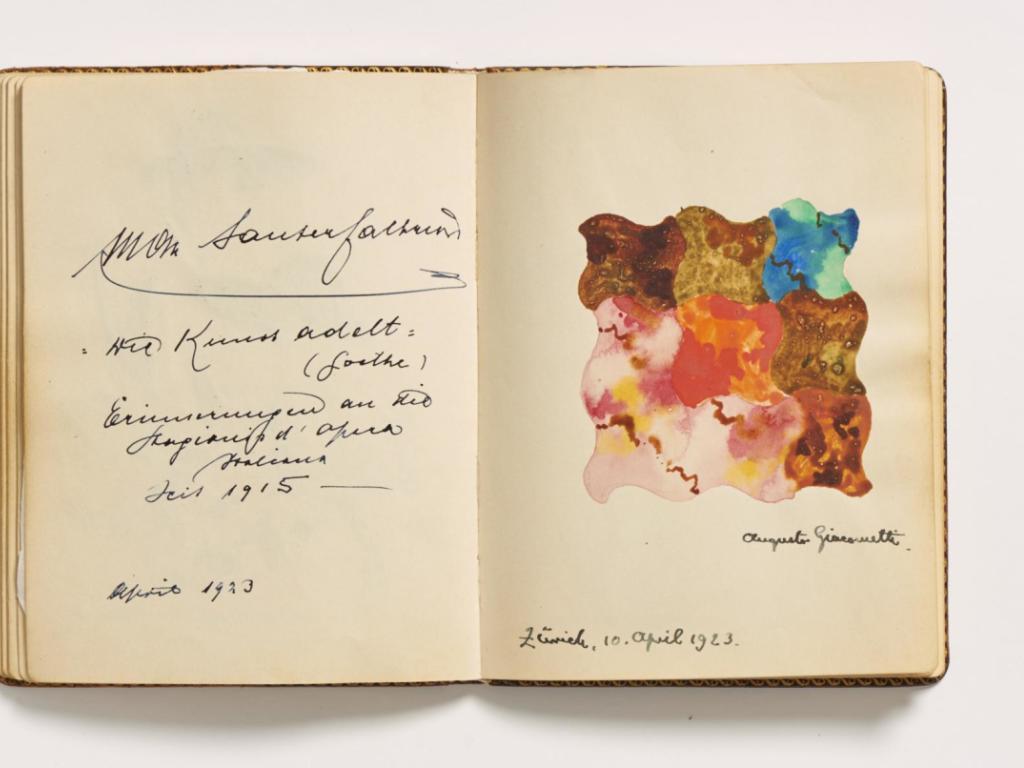 "Die Kunst adelt"
(Goethe)
Erinnerungen an die
Stagioni d'opera
Italiana
Seit 1915 —
April 1923
Augusto Giacometti.
Zürich, 10. April 1923.